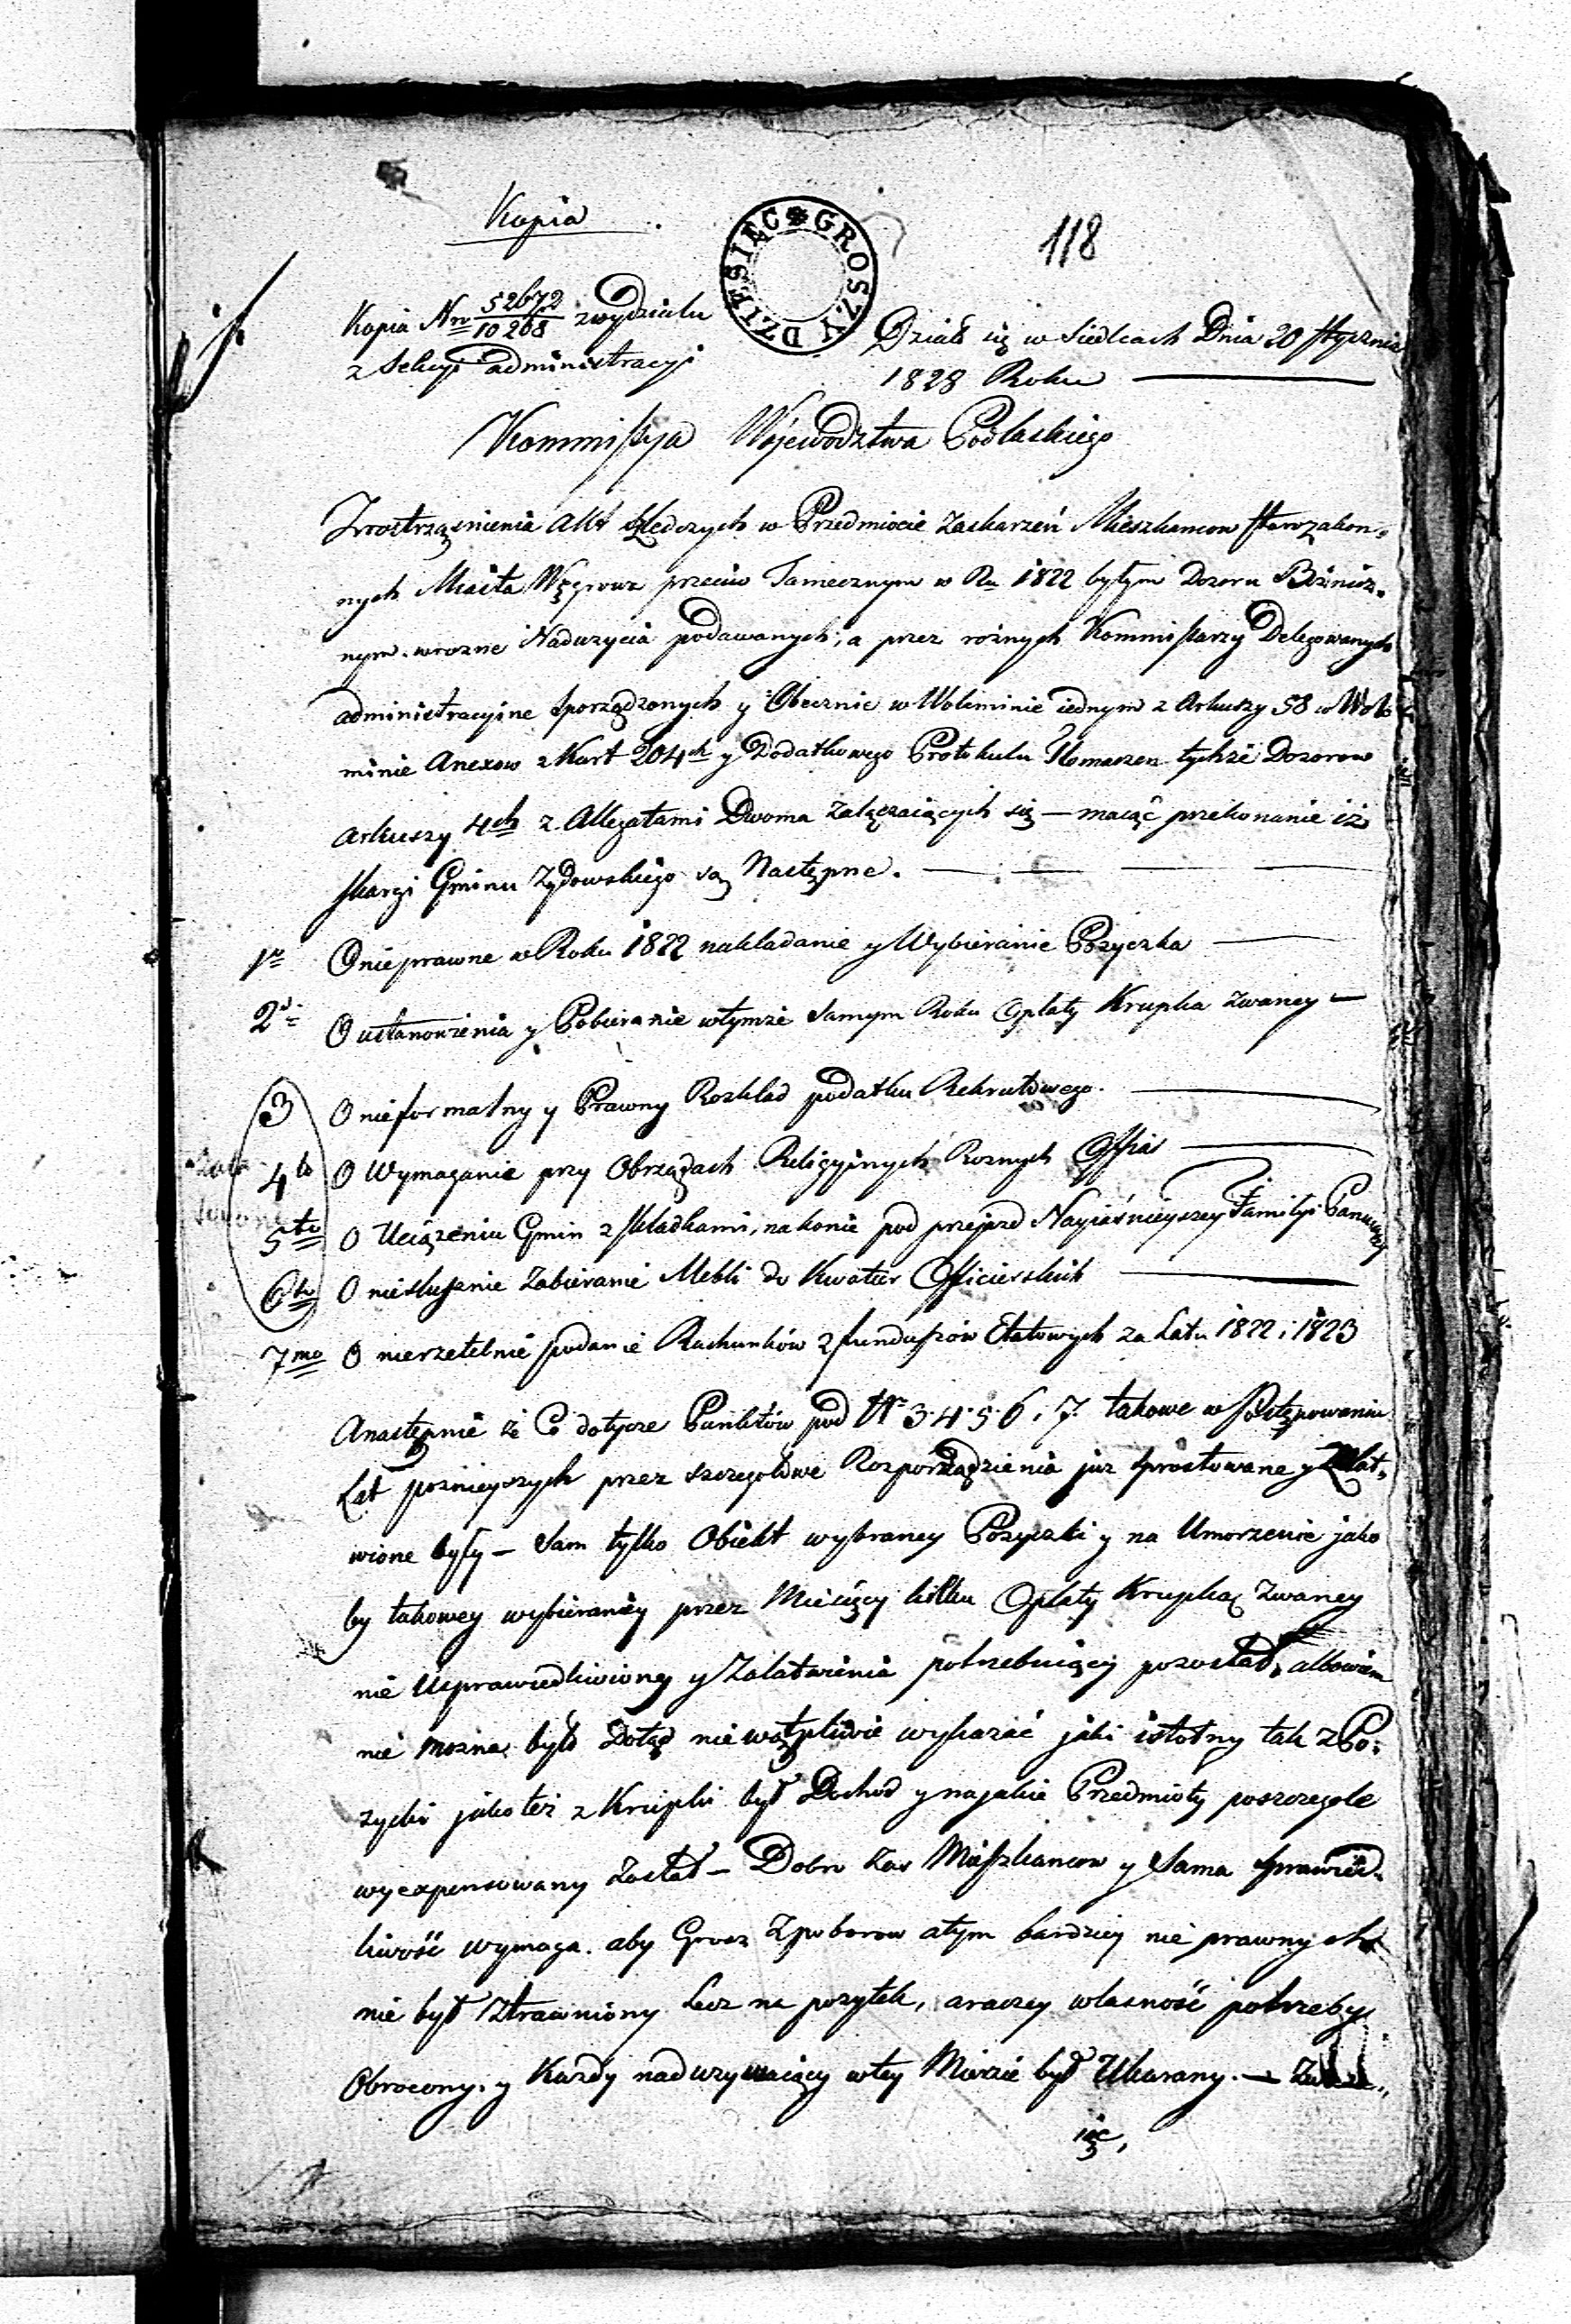 Kopia
118
DZIESIĘC GROSZY
Kopia Nro 52672/10268 z wydziału
z Sekcyi administracyi
Działo się w Siedlcach Dnia 20 Stycznia
1828 Roku
Kommissya Województwa Podlaskiego
Zroztrząsnienia Akt Sledczych w Przedmiocie zaskarzeń Mieszkancow Starozakon-
nych Miasta Węgrowa przeciw Tamecznym w Ru 1822 byłym Dozoru Bożnicz-
nym wrozne Naduzycia podawanych, a przez rożnych Kommissarzy Delegowanych
administracyine sporządzonych y Obecznie w Woliminie iednym z Arkuszy 58 w Wolu
minie Anexow z Kart 204ch y Dodatkowego Protokulu Tłomaczen tychże Dozorow
Arkuszy 4ch z Allegatami Dwoma załączaiących się — maiąc przekonanie iż
skargi Gminu Zydowskiego są Następne. —
1o O nieprawne w Roku 1822 nakladanie y Wybieranie Pożyczka
2o O ustanowienia y Pobieranie wtymże Samym Roku Opłaty Krupka zwaney —
3 O nieformalny y Prawny Rozkład podatku Rekrutowego.
4to O Wymaganie przy Obrządach Religyinych Roznych Offiar
5to O Uciążeniu Gmin z składkami, na konie pod przejazd Nayiaśnieyszey Familyi Panuiącey
6to O niesłuszne Zabieranie Mebli do Kwater Officierskich
7mo O nierzetelnie podanie Rachunków z funduszów Etatowych za Lata 1822 i 1823
Anastępnie że Co dotycze Punktów pod Nr 3. 4. 5. 6. i 7. takowe w Postępowaniu
Lat poznieyszych przez szczegolowe Rozporządzienia już sprostowane y Załat-
wione były — Sam tylko Obiekt wybraney Pozyczki y na Umorzenie jako
by takowey wybieraney przez Miesięcy kilku Opłaty Krupką Zwaney
nie Usprawiedliwioney y Załatwienia potrzebuiący pozostał, albowiem
nie mozna było Dotąd niewątpliwie wykazać jaki istotny tak z Po-
zycki jakoteż z Krupki był Dochod y na jakie Przedmioty poszczegole
wyexpensowany został — Dobro zas Mieszkancow y Sama sprawied-
liwość wymaga. aby Grosz Zpoborow atym bardziey nie prawnych
nie był Ztrawniony Lecz na pozytek, araczey własność potrzeby
Obrocony. y Kazdy naduzywaiący wtey Mierze był Ukarany. —
iąc,